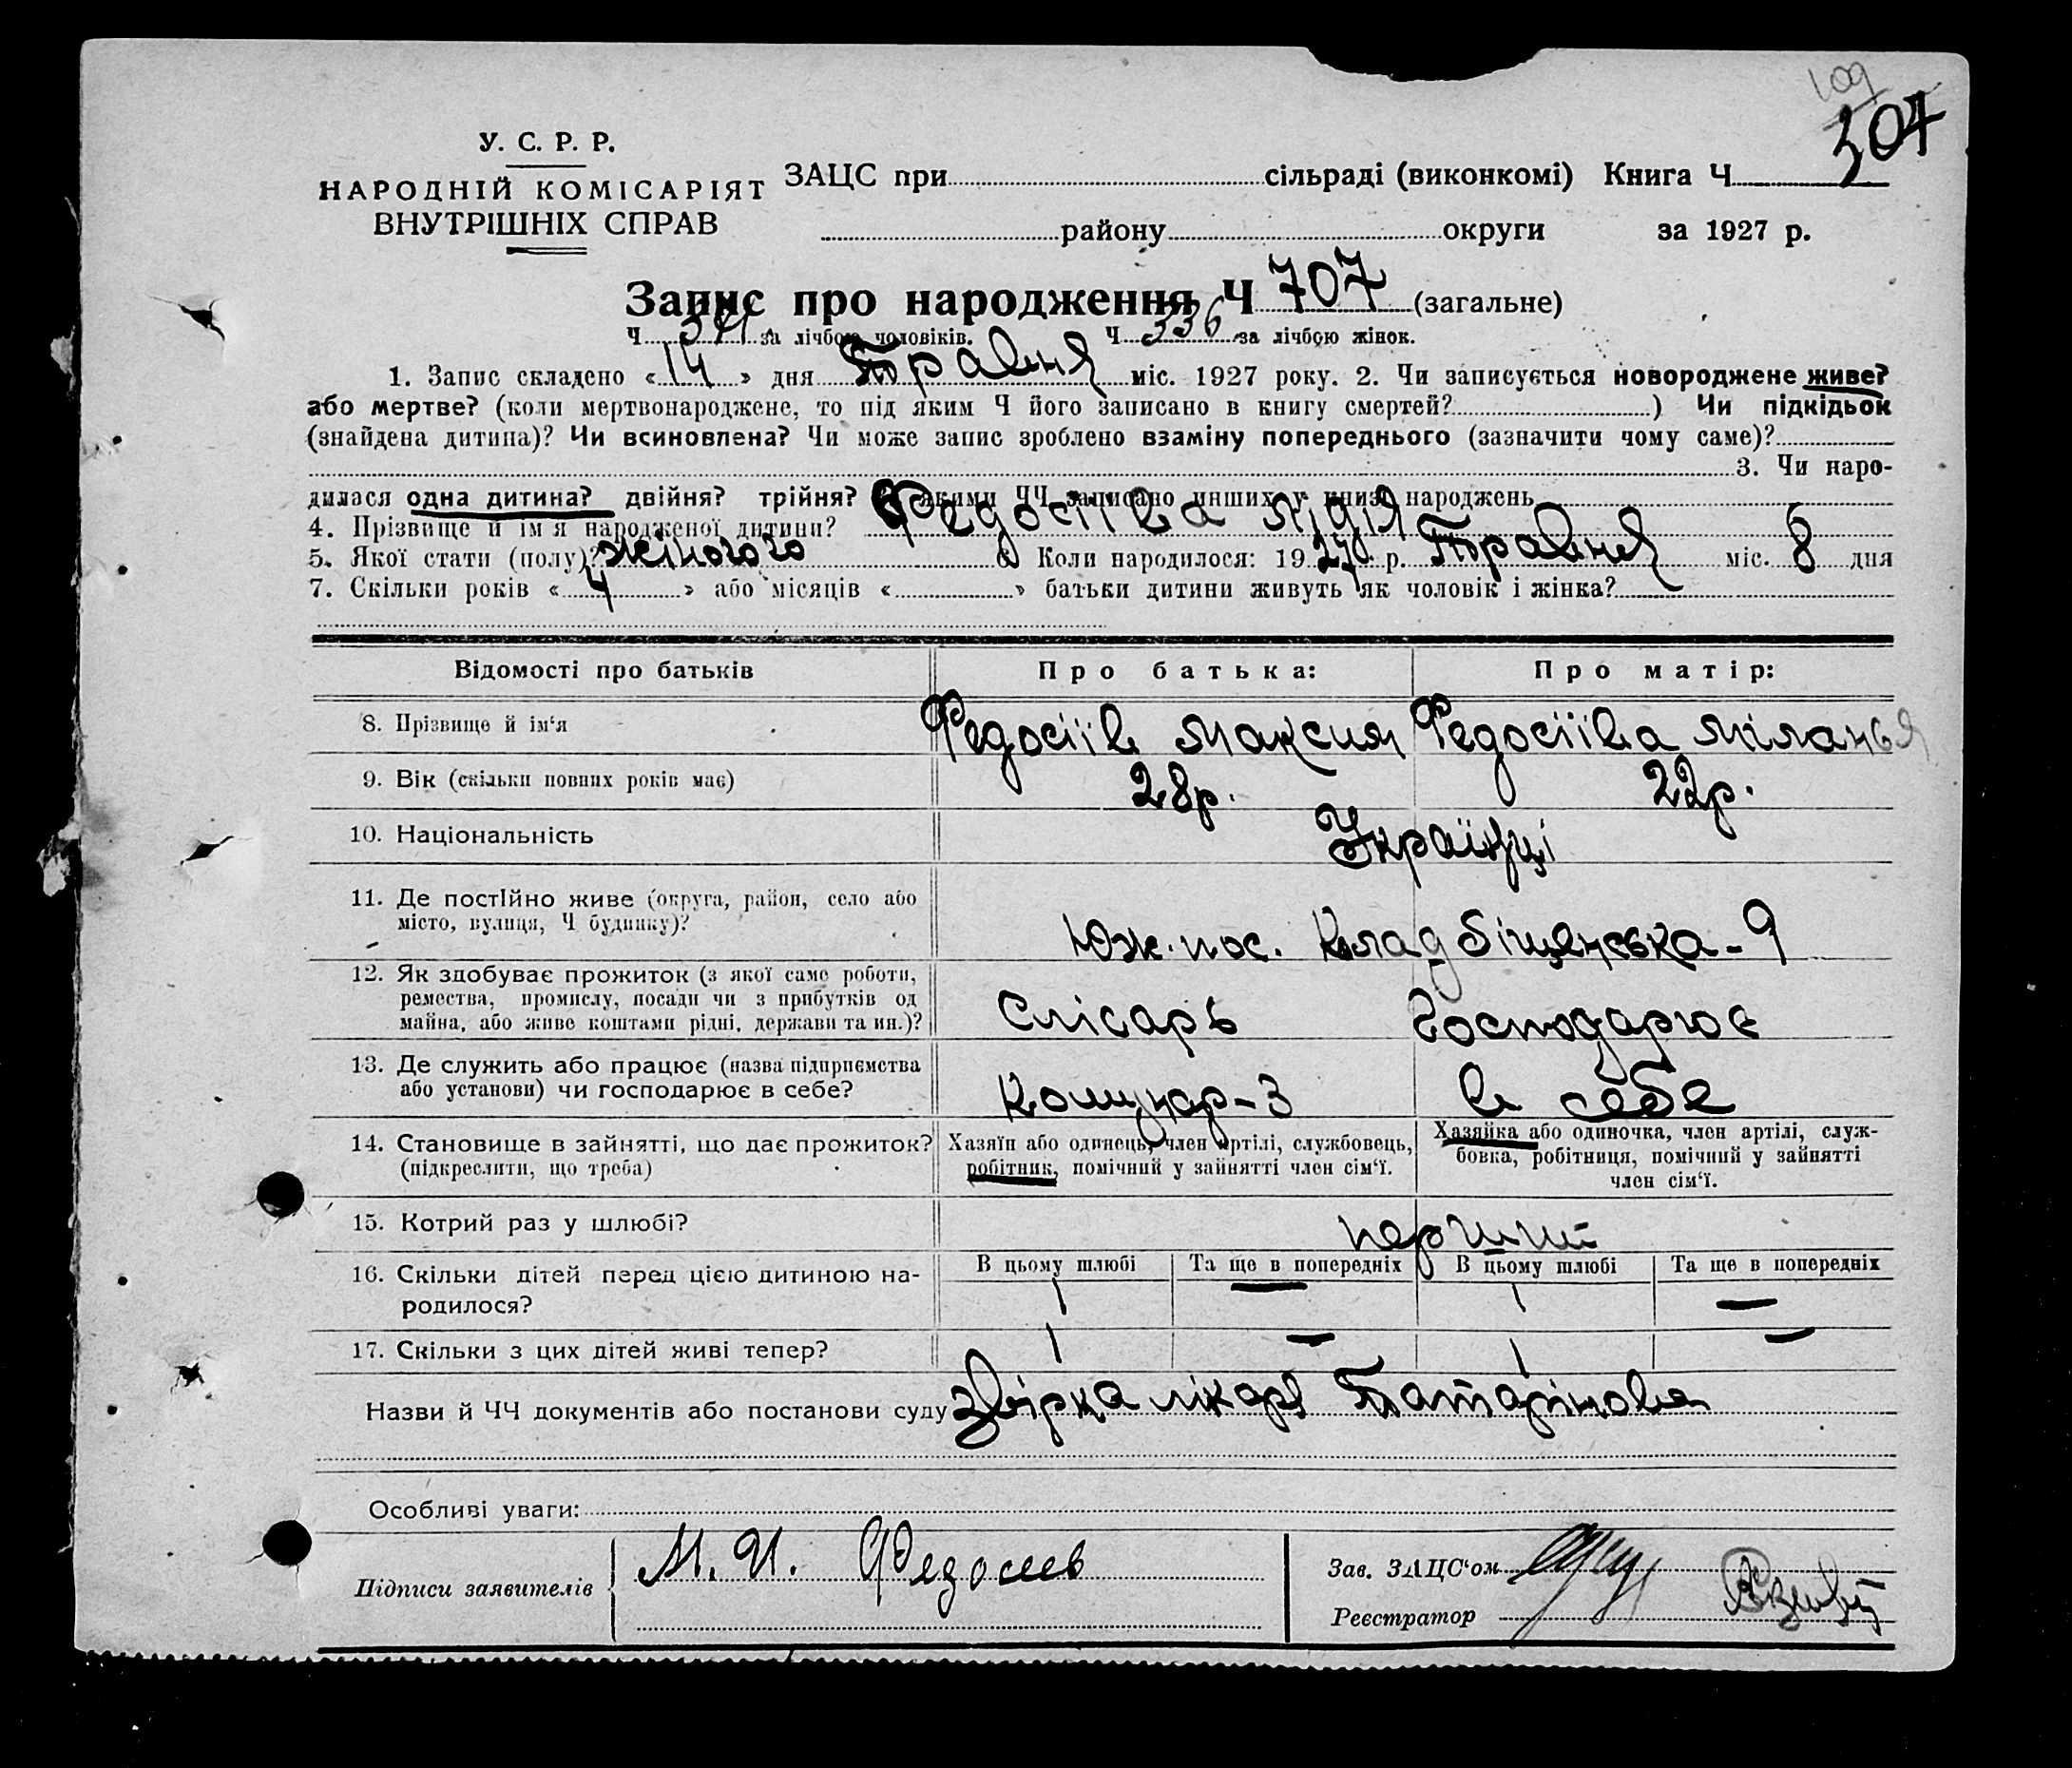 109
307
У. С. Р. Р.
НАРОДНІЙ КОМІСАРІЯТ
ВНУТРІШНІХ СПРАВ
ЗАЦС при сільраді (виконкомі) Книга Ч
району округи за 1927 р.
Запис про народження Ч 707 (загальне)
Ч 371 за лічбою чоловіків. Ч 336 за лічбою жінок.
1. Запис складено « 14 » дня Травня міс. 1927 року. 2. Чи записується новороджене живе?
або мертве? (коли мертвонароджене, то під яким Ч його записано в книгу смертей? ) Чи підкідьок
(знайдена дитина)? Чи всиновлена? Чи може запис зроблено взаміну попереднього (зазначити чому саме)?
3. Чи наро-
дилася одна дитина? двійня? трійня? якими ЧЧ записано инших у книзі народжень
4. Прізвище й ім'я народженої дитини? Федосіїва Лідія
5. Якої стати (полу)? жіночого 6. Коли народилося: 1927 р. Травня міс. 8 дня
7. Скільки років « 4 » або місяців « » батьки дитини живуть як чоловік і жінка?
Відомості про батьків Про батька: Про матір:
8. Прізвище й ім'я Федосіїв Максим Федосіїва Міланья
9. Вік (скільки повних років має) 28р. 22р.
10. Національність Українці
11. Де постійно живе (округа, район, село або
місто, вулиця, Ч будинку)? Юж. пос. Кладбіщенська - 9
12. Як здобуває прожиток (з якої саме роботи,
ремества, промислу, посади чи з прибутків од
майна, або живе коштами рідні, держави та ин.)? Слісарь Господарює
13. Де служить або працює (назва підприємства
або установи) чи господарює в себе? Комунар-З в себе
14. Становище в зайнятті, що дає прожиток?
(підкреслити, що треба)
Хазяїн або одинець, член артілі, службовець,
робітник, помічний у зайнятті член сім'ї.
Хазяйка або одиночка, член артілі, служ-
бовка, робітниця, помічний у зайнятті
член сім'ї.
15. Котрий раз у шлюбі? перший
16. Скільки дітей перед цією дитиною на-
родилося?
В цьому шлюбі Та ще в попередніх В цьому шлюбі Та ще в попередніх
1 — 1 —
17. Скільки з цих дітей живі тепер? 1 — 1 —
Назви й ЧЧ документів або постанови суду Звірка лікаря Татарінова
Особливі уваги:
Підписи заявителів М. И. Федосеев
Зав. ЗАЦС'ом
Реєстратор